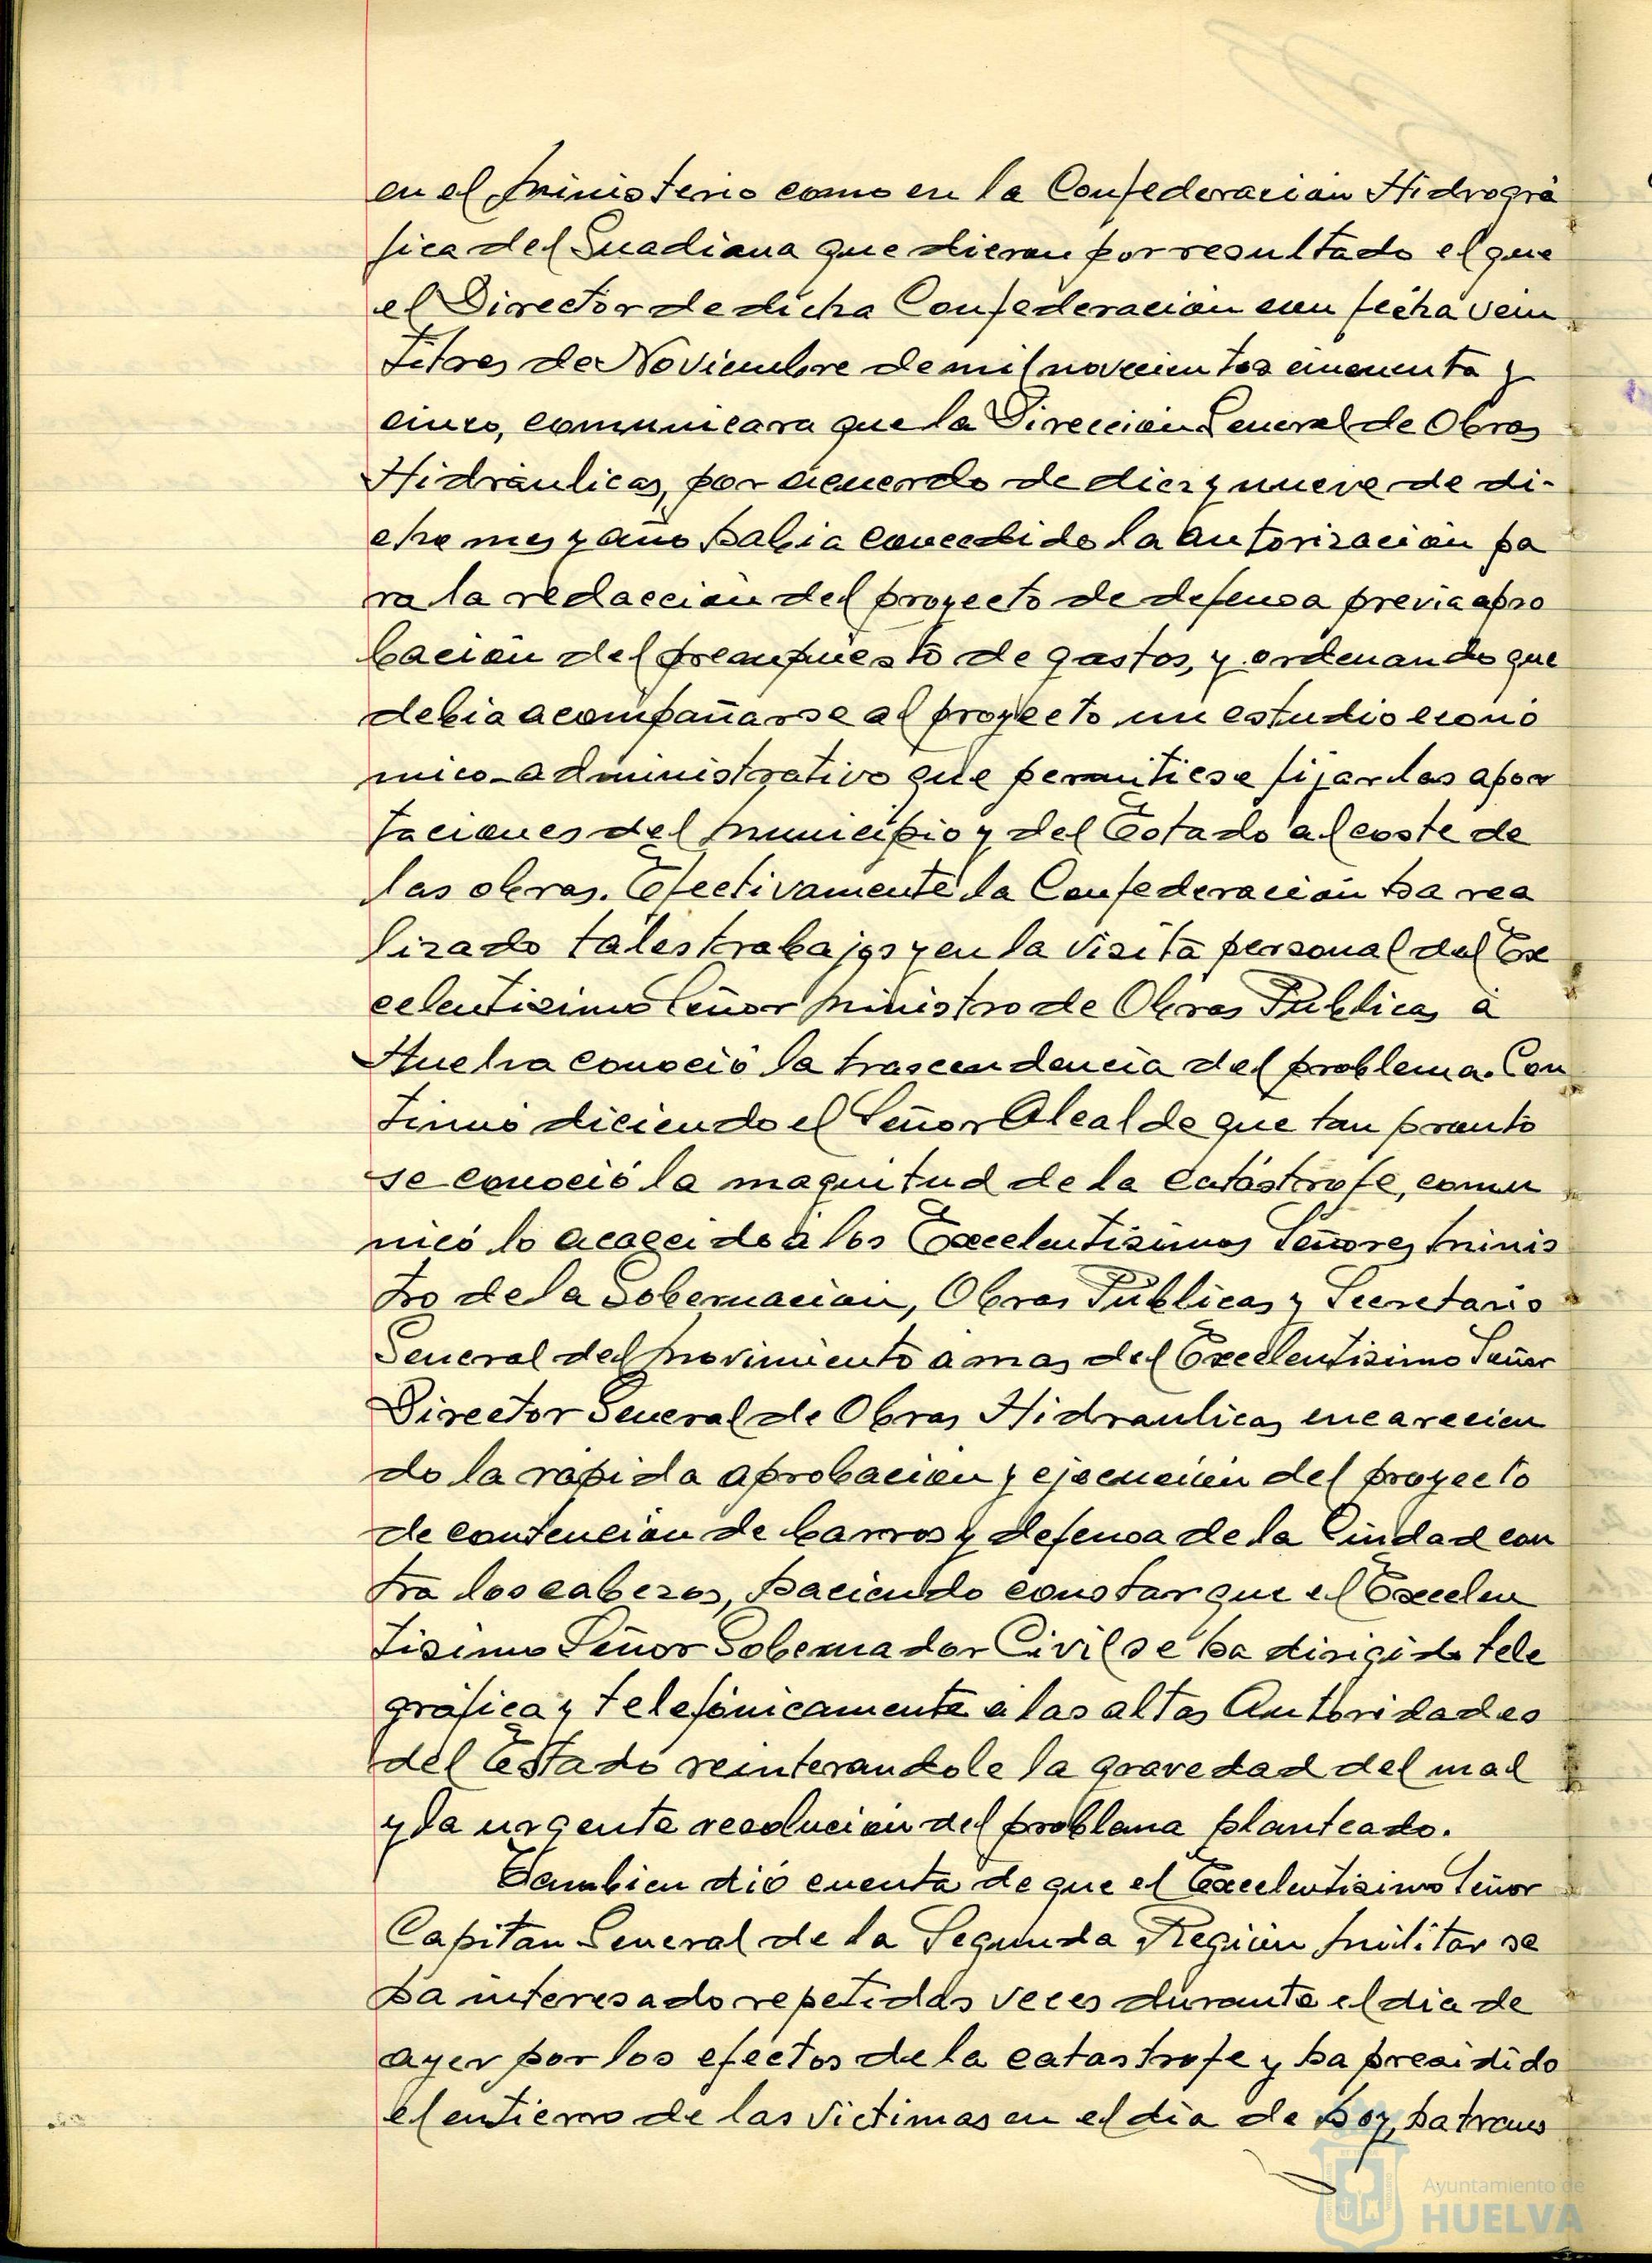 en el Ministerio como en la Confederación Hidrográ
fica del Guadiana que dieran por resultado el que
el Director de dicha Confederación con fecha vein
titres de Noviembre de mil novecientos cincuenta y
cinco, comunicara que la Dirección General de Obras
Hidráulicas, por acuerdo de diez y nueve de di-
cho mes y año habia concedido la autorización pa
ra la redacción del proyecto de defensa previa apro
bación del presupuesto de gastos, y ordenando que
debia acompañarse al proyecto un estudio econó
mico-administrativo que permitiese fijar las apor
taciones del Municipio y del Estado al coste de
las obras. Efectivamente la Confederación ha rea
lizado tales trabajos y en la visita personal del Ex
celentisimo Señor Ministro de Obras Públicas a
Huelva conoció la trascendencia del problema. Con
tinuó diciendo el Señor Alcalde que tan pronto
se conoció la magnitud de la catástrofe, comu
nicó lo acaecido a los Excelentisimos Señores Minis
tro de la Gobernación, Obras Públicas y Secretario
General del Movimiento a mas del Excelentisimo Señor
Director General de Obras Hidraulicas encarecien
do la rápida aprobación y ejecución del proyecto
de contención de barros y defensa de la Ciudad con
tra los cabezos, haciendo constar que el Excelen
tisimo Señor Gobernador Civil se ha dirigido tele
gráfica y telefónicamente a las altas Autoridades
del Estado reinterandole la gravedad del mal
y la urgente resolución del problema planteado.
Tambien dió cuenta de que el Excelentisimo Señor
Capitan General de la Segunda Región Militar se
ha interesado repetidas veces durante el dia de
ayer por los efectos de la catastrofe y ha presidido
el entierro de las victimas en el dia de hoy, ha trans
Ayuntamiento de
HUELVA